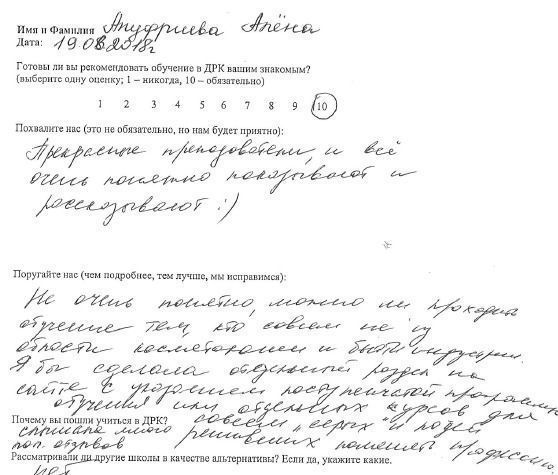 Имя и Фамилия Ануфриева Алёна
Дата: 19.08.2018г
Готовы ли вы рекомендовать обучение в ДРК вашим знакомым?
(выберите одну оценку; 1 – никогда, 10 – обязательно)
1 2 3 4 5 6 7 8 9 10
Похвалите нас (это не обязательно, но нам будет приятно):
Прекрасные преподаватели, и всё
очень понятно показывают и
рассказывают :)
Поругайте нас (чем подробнее, тем лучше, мы исправимся):
Не очень понятно, можно ли проходить
обучение тем, кто совсем не из
области косметологии и бьюти индустрии.
Я бы сделала отдельный раздел на
сайте с указанием поступенчатой программы
обучения или отдельных курсов для
совсем "серых" людей
Почему вы пошли учиться в ДРК?
решивших поменять профессию
слышала много
пол. отзывов
Рассматривали ли другие школы в качестве альтернативы? Если да, укажите какие.
нет